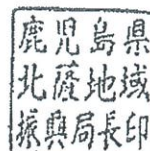 鹿児島県
北薩地域
振興局長印